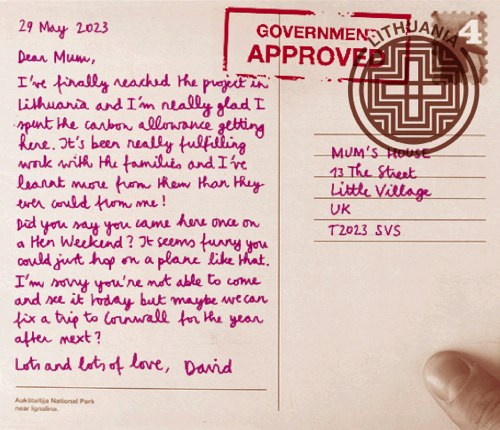 29 May 2023
Dear Mum,
I've finally reached the project in
Lithuania and I'm really glad I
spent the carbon allowance getting
here. It's been really fulfilling
work with the families and I've
learnt more from them than they
ever could from me!
Did you say you came here once on
a Hen Weekend? It seems funny you
could just hop on a plane like that.
I'm sorry you're not able to come
and see it today but maybe we can
fix a trip to Cornwall for the year
after next?
Lots and lots of love, David
Aukštaitija National Park
near Ignalina.
GOVERNMENT
APPROVED
LITHUANIA
4
MUM'S HOUSE
13 The Street
Little Village
UK
T2023 SVS